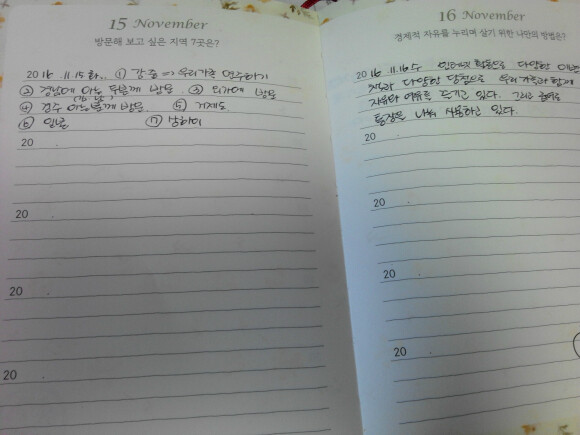 15 November
방문해 보고 싶은 지역 7곳은?
2016 .11.15 화.. ① 강 줄 => 우리가족 연주하기
② 경남에 아는 분들께 방문 ③ 외가에 방문
④ 경주 아는분들께 방문 ⑤ 거제도
⑥ 일본 ⑦ 상하이
20
20
20
20
16 November
경제적 자유를 누리며 살기 위한 나만의 방법은?
2016 .11.16 수 다양한
다양한 우리가족과 함께
자유와 여유를 느끼고 있다. 그리고
통장은 나눠 사용하고 있다.
20
20
20
20